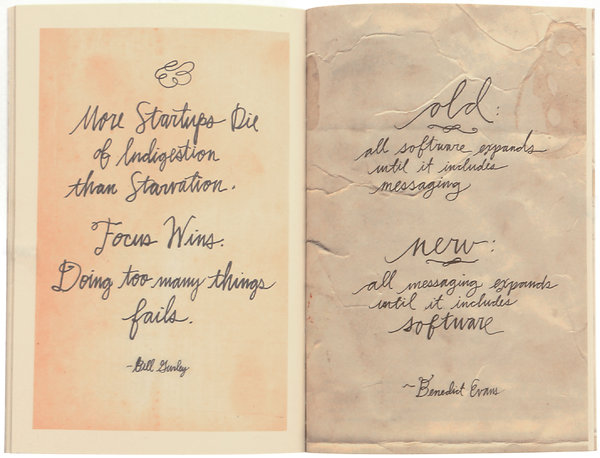 More Startups Die
of Indigestion
than Starvation.
Focus Wins.
Doing too many things
fails.
-Bill Gurley
old:
all software expands
until it includes
messaging
new:
all messaging expands
until it includes
software
~Benedict Evans